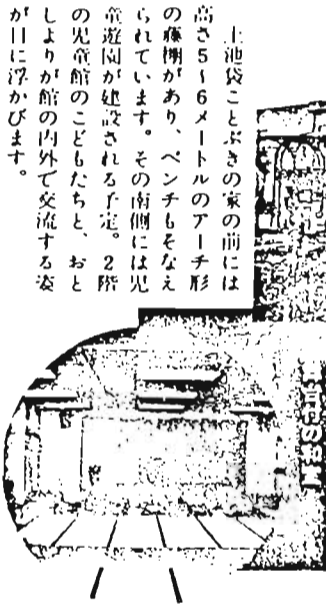 上池袋ことぶきの家の前には
高さ5〜6メートルのアーチ形
の藤棚があり、ベンチもそなえ
られています。その南側には児
童遊園が建設される予定。2階
の児童館のこどもたちと、おと
しよりが館の内外で交流する姿
が目に浮かびます。